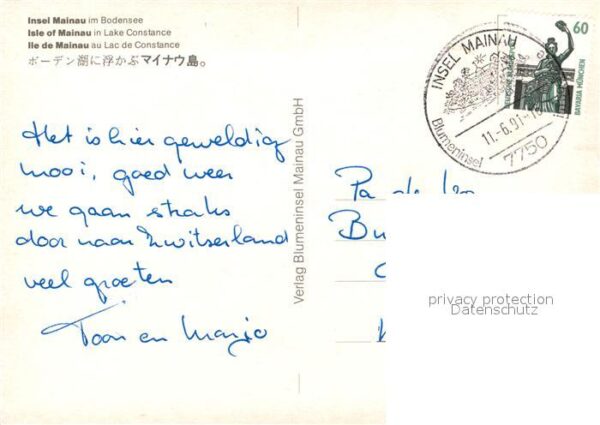 Insel Mainau im Bodensee
Isle of Mainau in Lake Constance
Ile de Mainau au Lac de Constance
ボーデン湖に浮かぶマイナウ島。
Het is hier geweldig
mooi, goed weer
we gaan straks
door naar Zwitserland
veel groeten
Toon en Marjo
Verlag Blumeninsel Mainau GmbH
INSEL MAINAU
Blumeninsel
11.-6.91.-1
7750
60
BAYARIA MÜNCHEN
Pa de
Bu
privacy protection
Datenschutz